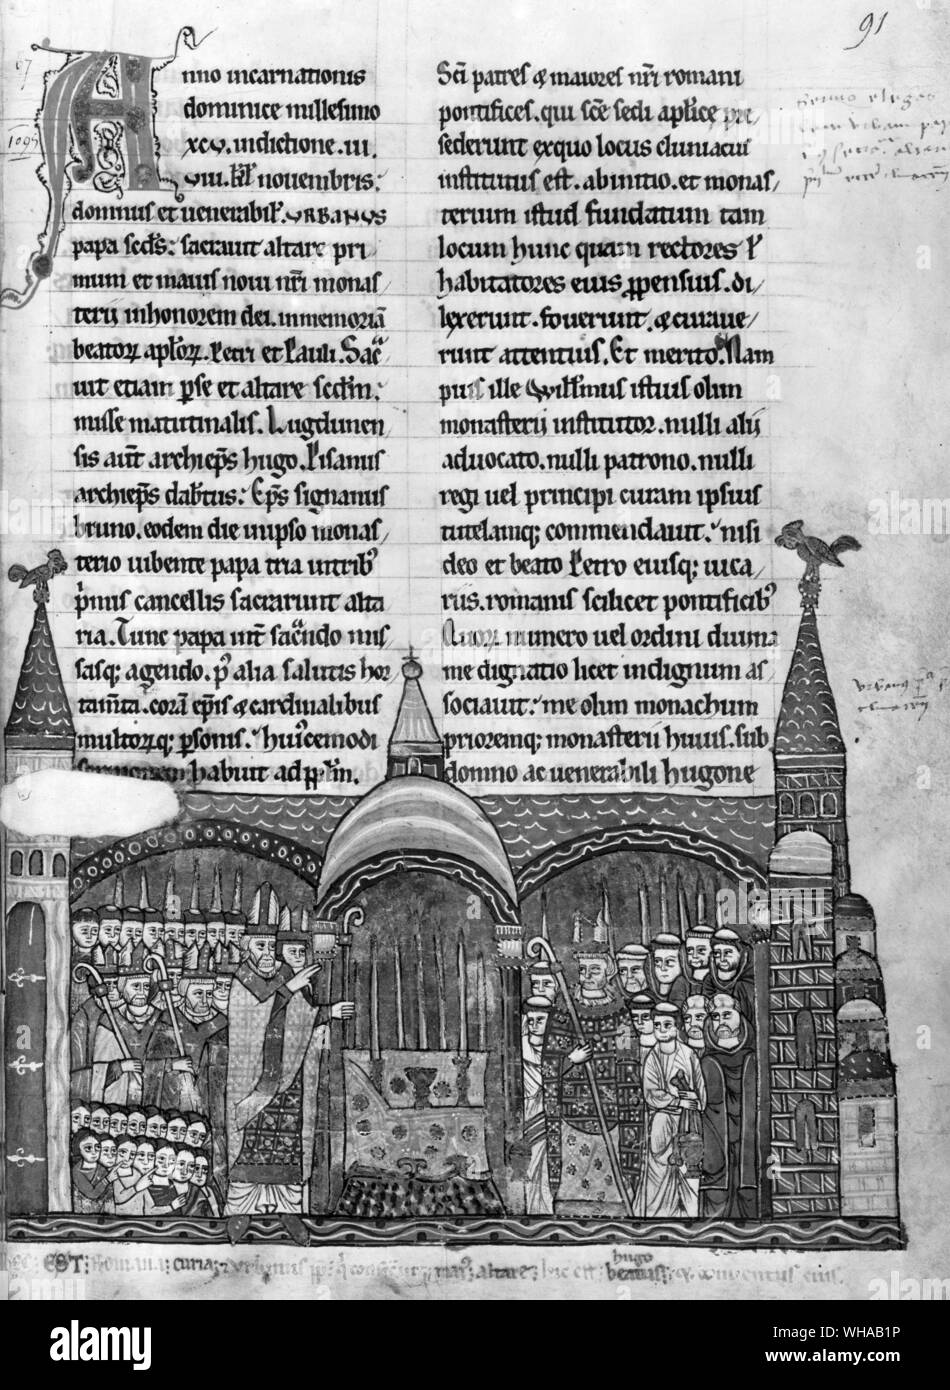 91
Anno incarnationis
dominice millesimo
xcv. indictione. iii.
viii. kł. novembris:
domnus et venerabil'. URBANUS
papa scds: sacravit altare pri
mum et maius novi nr̄i monas/
terii in honorem dei. in memoriā
beatoꝝ aploꝝ. Petri et Pauli. Sac̄/
vit etiam p se et altare scdm:
misse matutinalis. Lugdunen
sis aut̄ archiep̄s hugo. Pisanus
archiep̄s dabtus: Ep̄s signanus
bruno. eodem die in ipso monas/
terio iubente papa tria in trib'
p̄mis cancellis sacrarunt alta
ria. Tunc papa int̄ sac̄ndo mis
sasq; agendo. p' alia salutis hor/
tam̄ta. corā ep̄is & cardinalibus
multorq; p̄sonis. huiꝰcemodi
sermonem habuit ad pp̄lm.
Sc̄i patres & maiores nr̄i romani
pontifices. qui sc̄e sedi apl̄ice pre/
sederunt ex quo locus cluniaci
institutus est. ab initio. et monas/
terium istud fundatum tam
locum hunc quam rectores ł
habitatores eius ꝓpensius. di/
lexerunt. foverunt. & curave/
runt attentius. Et merito. Nam
pius ille Willmus istius olim
monasterii institutor. nulli alii
advocato. nulli patrono. nulli
regi vel principi curam ipsius
tutelamq; commendavit: nisi
deo et beato Petro eiusq; vica/
riis. romanis scilicet pontificib'
Quoꝝ numero vel ordini divina
me dignatio licet indignum as/
sociavit: me olim monachum
prioremq; monasterii huius. sub
domno ac venerabili hugone
1095
EST: Romana: curia: & Urbanus
altare: hic est: beatus: & conventus eius.
hugo
alamy
Image ID: WHAB1P
www.alamy.com